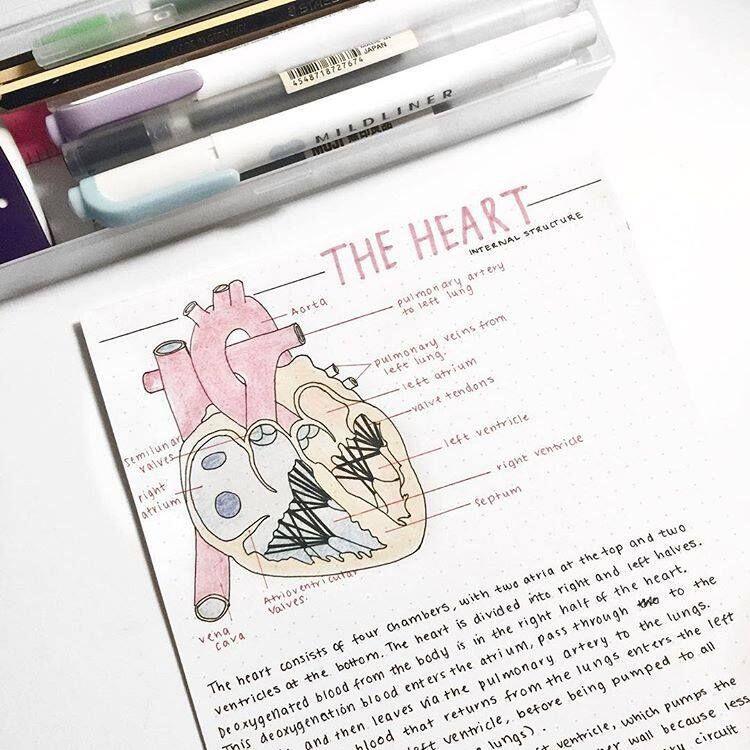 MADE IN
JAPAN
4548718727674
MILDLINER
MUJI
THE HEART
INTERNAL STRUCTURE
Aorta
pulmonary artery
to left lung
pulmonary veins from
left lung.
left atrium
valve tendons
left ventricle
right ventricle
septum
semilunar
valves
right
atrium
Atrioventricular
valves.
vena
cava
The heart consists of four chambers, with two atria at the top and two
ventricles at the bottom. The heart is divided into right and left halves.
Deoxygenated blood from the body is in the right half of the heart.
This deoxygenation blood enters the atrium, pass through to the
and then leaves via the pulmonary artery to the lungs.
blood that returns from the lungs enters the left
left ventricle, before being pumped to all
lungs).
ventricle, which pumps the
wall because less
circuit